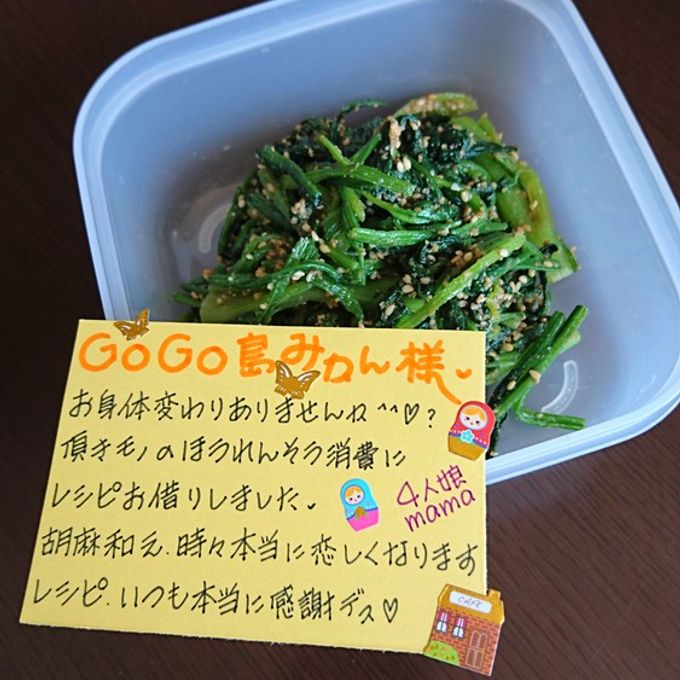 GoGo島みかん様
お身体変わりありませんね^^♡?
頂きモノのほうれんそう消費に
レシピお借りしました
4人娘
mama
胡麻和え.時々本当に恋しくなります
レシピ.いつも本当に感謝デス♡
CAFE